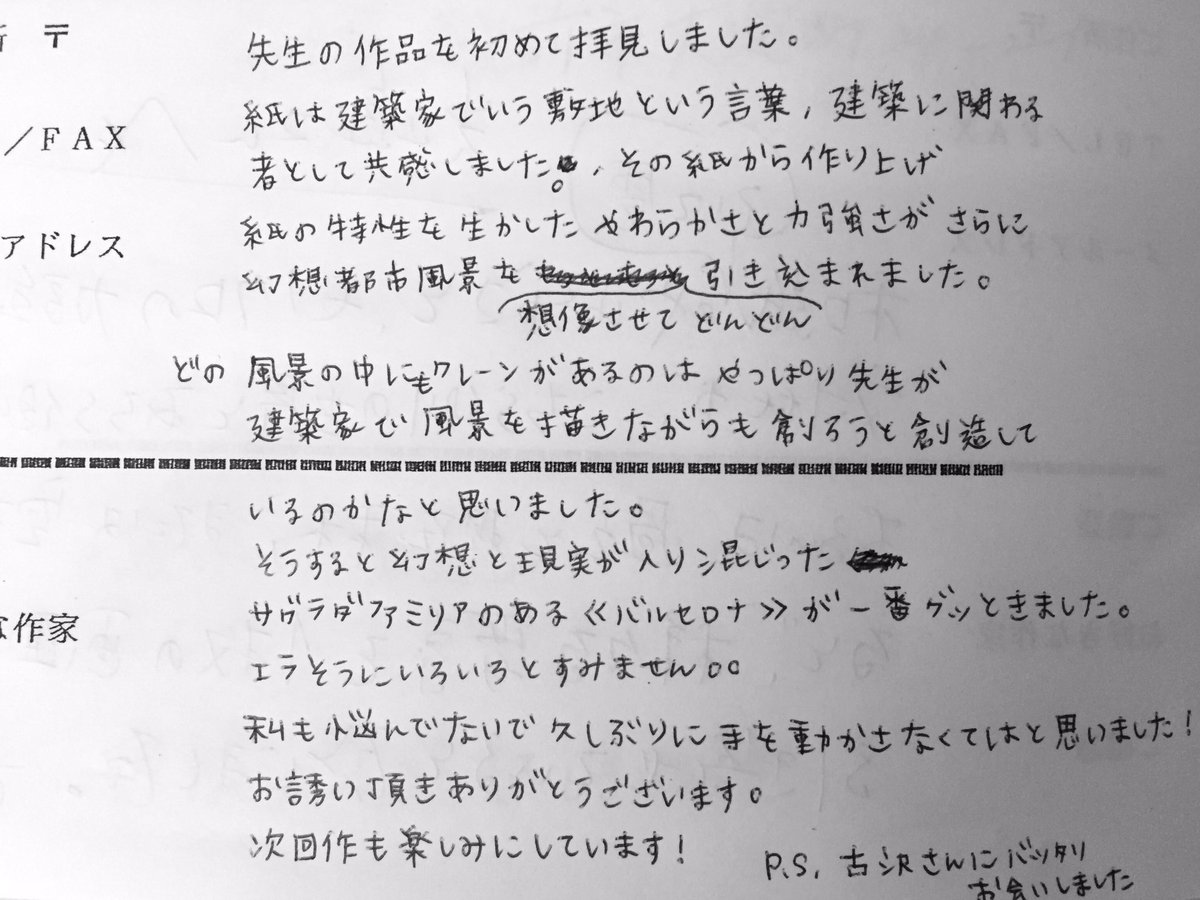 〒
先生の作品を初めて拝見しました。
紙は建築家でいう敷地という言葉, 建築に関わる
／ＦＡＸ
者として共感しました。、その紙から作り上げ
紙の特性を生かしたやわらかさと力強さがさらに
アドレス
幻想都市風景を 引き込まれました。
想像させてどんどん
どの風景の中にもクレーンがあるのはやっぱり先生が
建築家で風景を描きながらも創ろうと創造して
いるのかなと思いました。
そうすると幻想と現実が入り混じった
サグラダファミリアのある≪バルセロナ≫が一番グッときました。
な作家
エラそうにいろいろとすみません。。
私も悩んでないで久しぶりに手を動かさなくてはと思いました!
お誘い頂きありがとうございます。
次回作も楽しみにしています!
P.S, 古沢さんにバッタリ
お会いしました